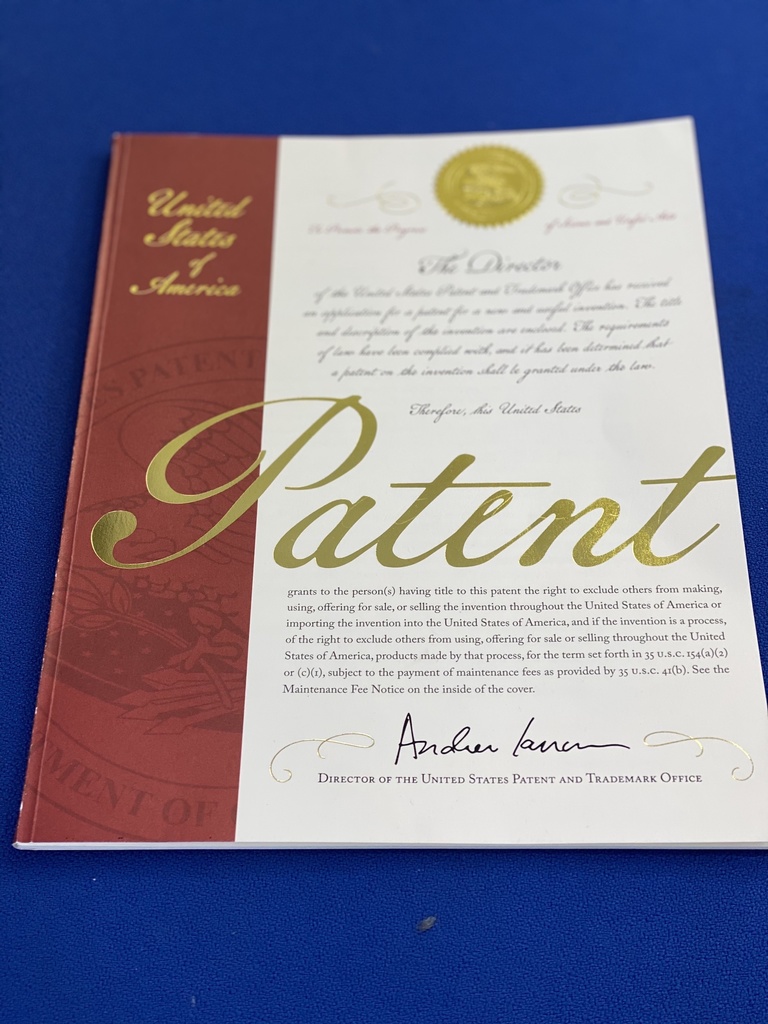 United
States
of
America
To Promote the Progress
of Science and Useful Arts
The Director
of the United States Patent and Trademark Office has received
an application for a patent for a new and useful invention. The title
and description of the invention are enclosed. The requirements
of law have been complied with, and it has been determined that
a patent on the invention shall be granted under the law.
Therefore, this United States
Patent
grants to the person(s) having title to this patent the right to exclude others from making,
using, offering for sale, or selling the invention throughout the United States of America or
importing the invention into the United States of America, and if the invention is a process,
of the right to exclude others from using, offering for sale or selling throughout the United
States of America, products made by that process, for the term set forth in 35 U.S.C. 154(a)(2)
or (c)(1), subject to the payment of maintenance fees as provided by 35 U.S.C. 41(b). See the
Maintenance Fee Notice on the inside of the cover.
Andrei Iancu
DIRECTOR OF THE UNITED STATES PATENT AND TRADEMARK OFFICE
ES PATENT
MENT OF